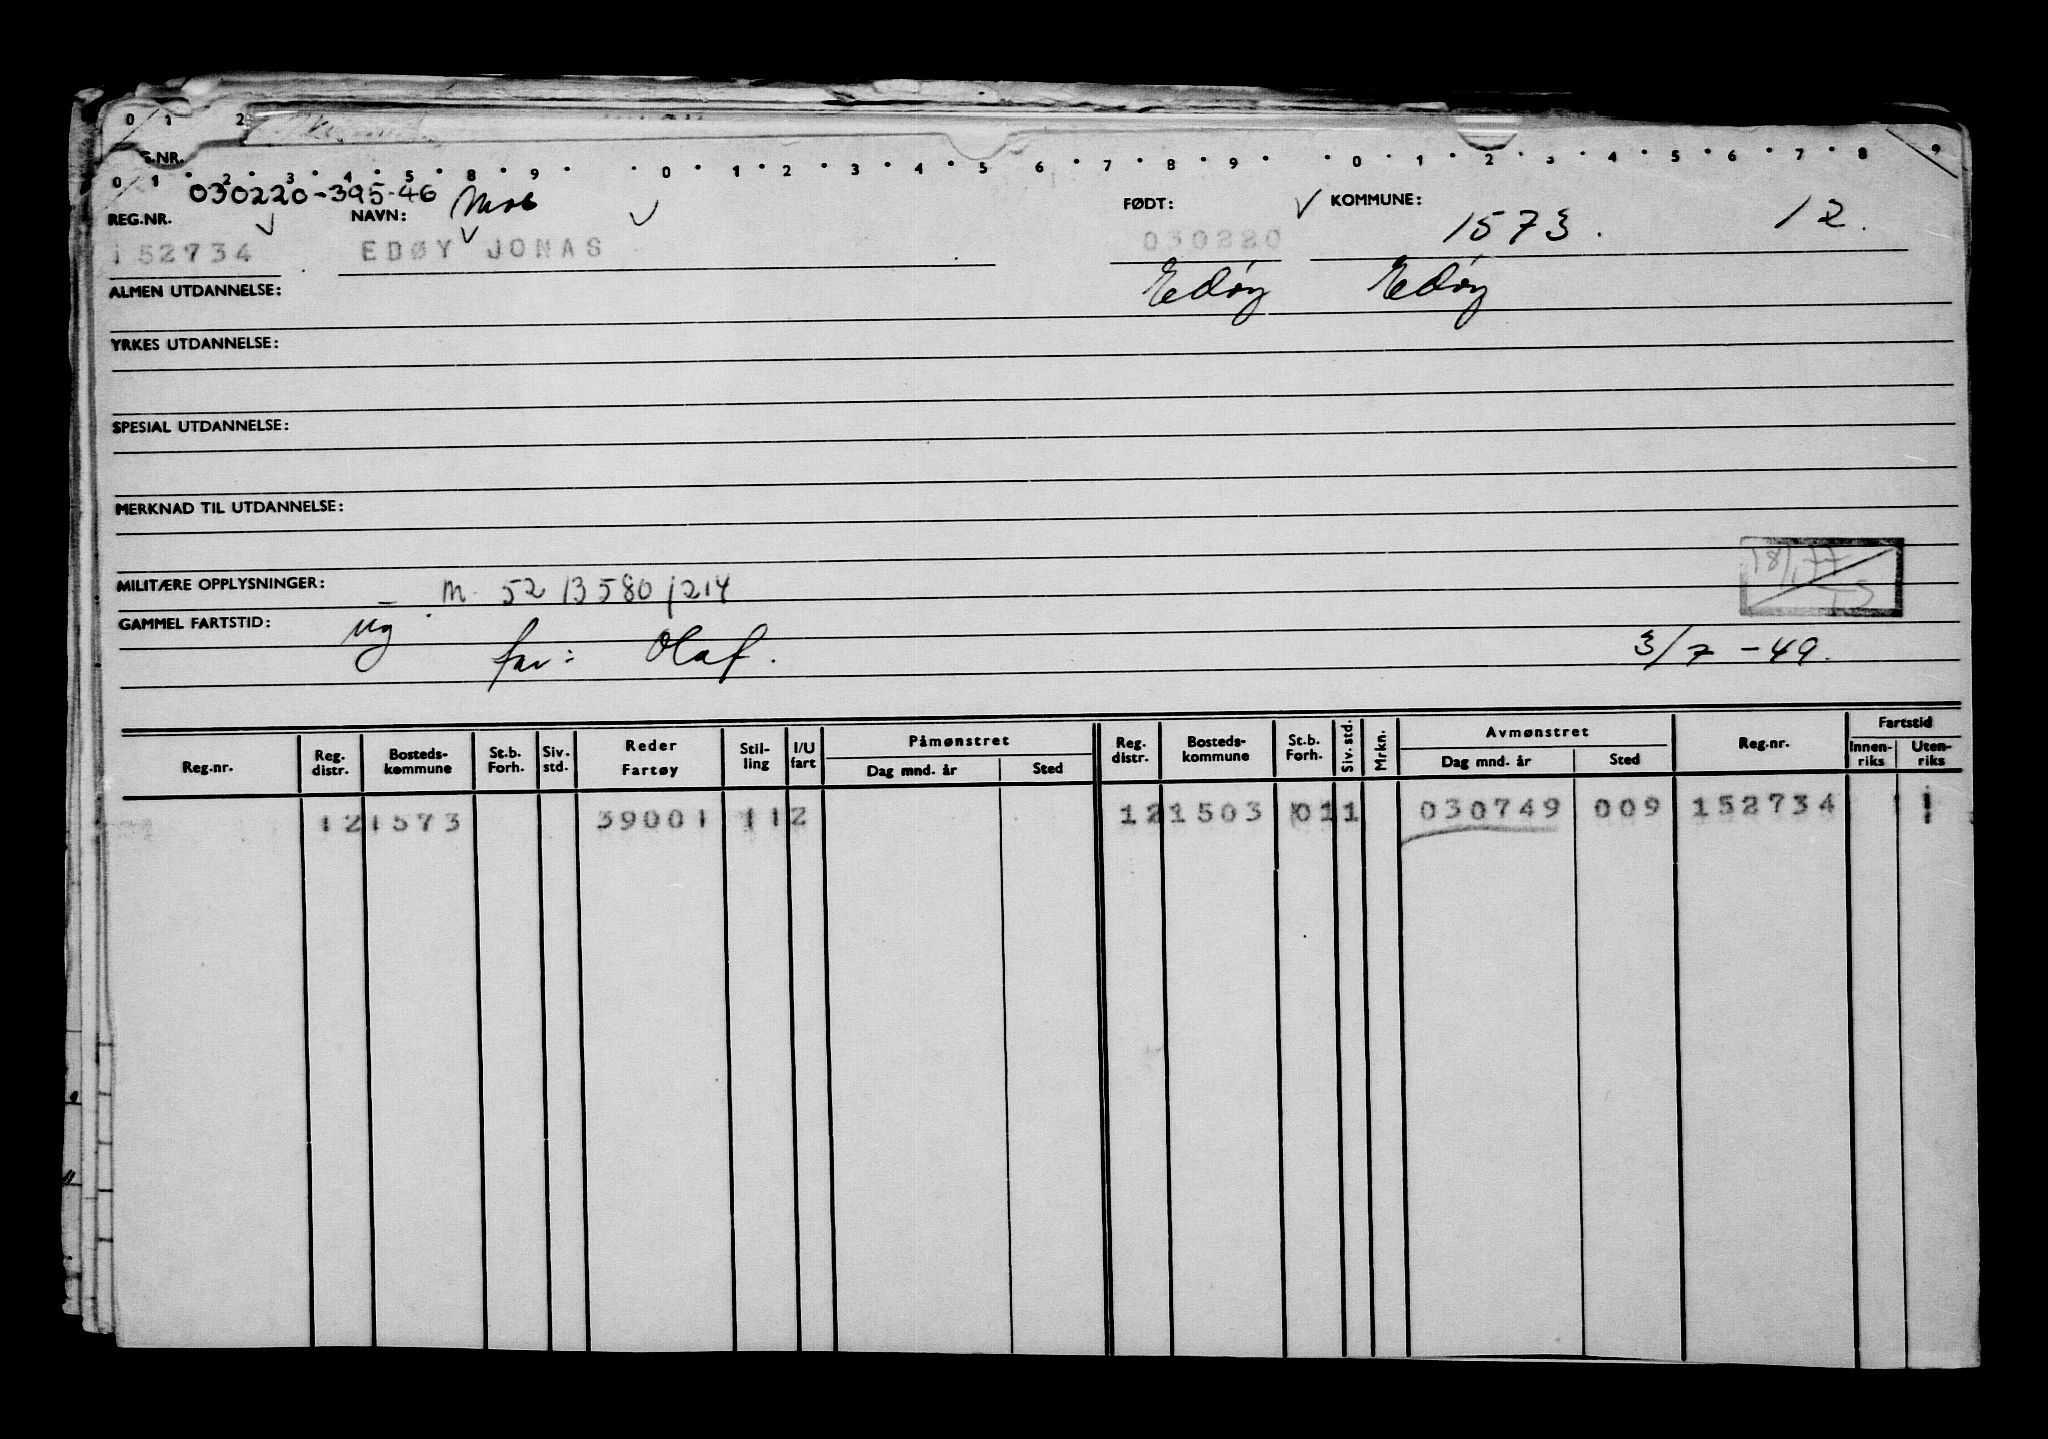 0 1 2
G.NR.
0 1 2 3 4 5 8 9 0 1 2 3 4 5 6 7 8 9 0 1 2 3 4 5 6 7 8 9
030220-395-46
REG.NR. NAVN: FØDT: KOMMUNE: 1573. 12.
152734 EDØY JONAS 030220
ALMEN UTDANNELSE: Edøy Edøy
YRKES UTDANNELSE:
SPESIAL UTDANNELSE:
MERKNAD TIL UTDANNELSE:
18/1 77
MILITÆRE OPPLYSNINGER: - M. 52 13580/214
GAMMEL FARTSTID: Ug far: Olaf. 3/7-49.
Reg.nr. Reg. distr. Bosteds-kommune St.b. Forh. Siv. std. Reder Fartøy Stil-ling I/U fart Påmønstret Dag mnd. år Sted Reg. distr. Bosteds-kommune St.b. Forh. Siv. std. Mrkn. Avmønstret Dag mnd. år Sted Reg.nr. Fartstid Innen-riks Uten-riks
12 1573 39001 11 2 12 1503 01 1 030749 009 152734 1 1